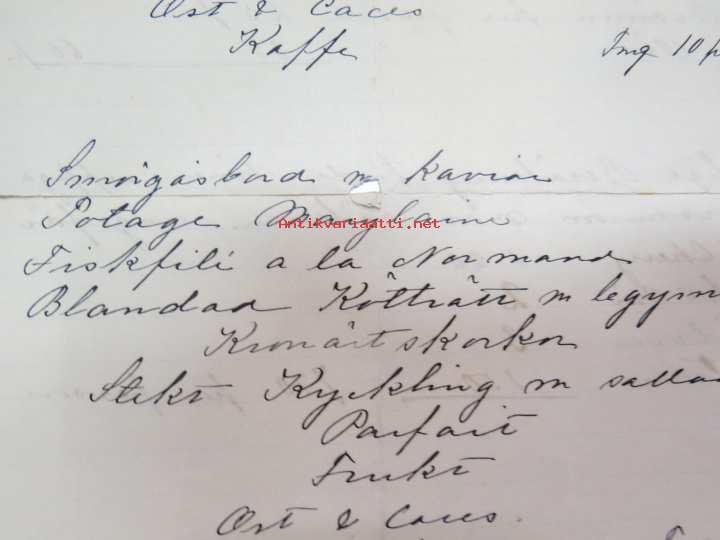 Ost & Caces
Kaffe 10 p
Smörgåsbord m kaviar
Potage
Antikvariaatti.net
Fiskfilé a la Normand
Blandad Kötträtt m legym
Kronärtskorkor
Stekt Kyckling m sallad
Parfait
Frukt
Ost & Caces.